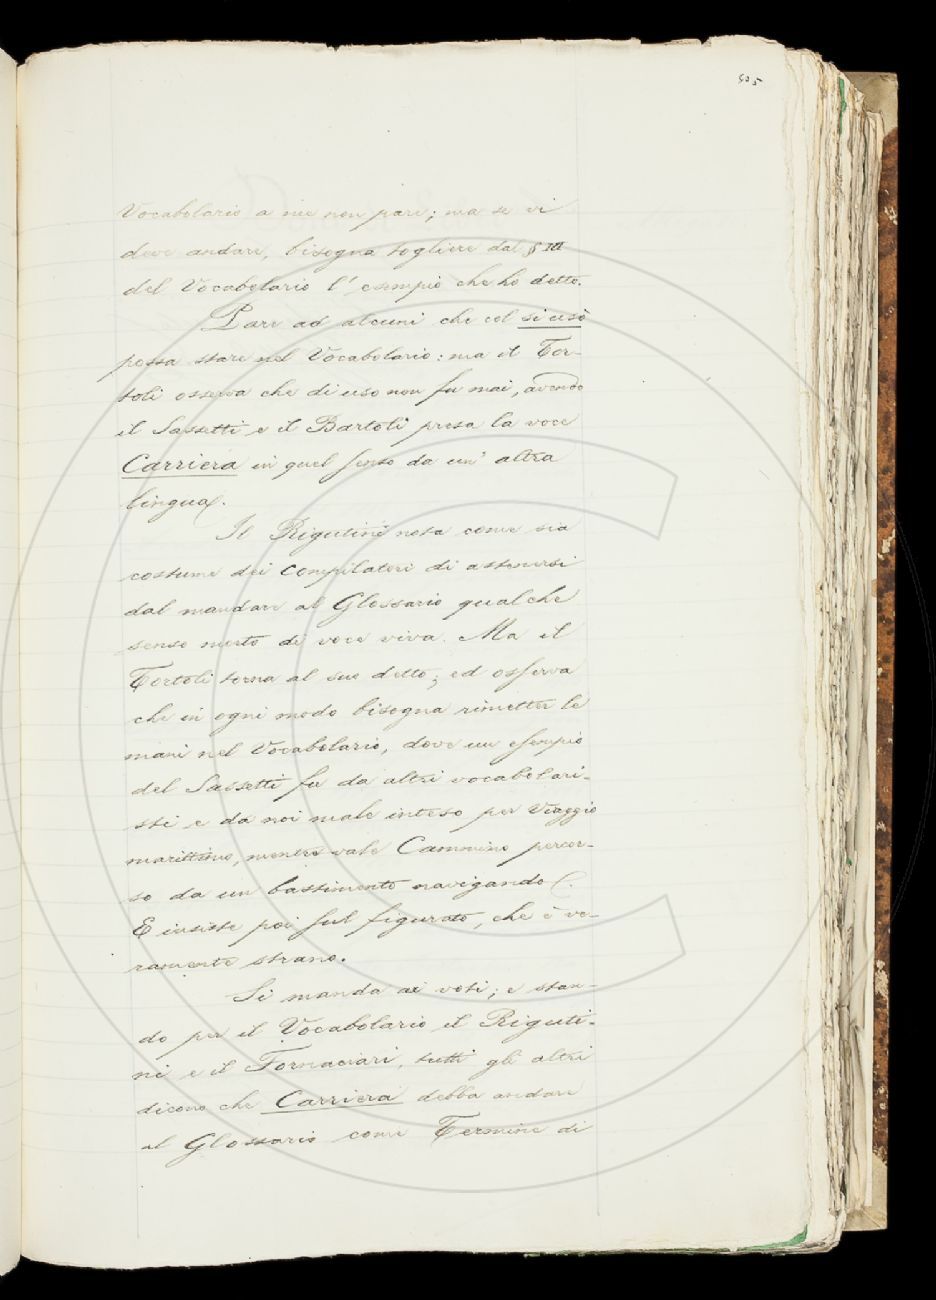 505
Vocabolario a me non pare; ma se vi
deve andare, bisogna togliere dal § III
del Vocabolario l'esempio che ho detto.
Pare ad alcuni che col si usò
possa stare nel Vocabolario: ma il Tor-
toli osserva che di uso non fu mai, avendo
il Sassetti e il Bartoli presa la voce
Carriera in quel senso da un' altra
lingua.
Il Rigutini nota come sia
costume dei Compilatori di astenersi
dal mandare al Glossario qualche
senso morto di voce viva. Ma il
Tortoli torna al suo detto; ed osserva
che in ogni modo bisogna rimetter le
mani nel Vocabolario, dove un esempio
del Sassetti fu da altri vocabolari-
sti e da noi male inteso per Viaggio
marittimo, mentre vale Cammino percor-
so da un bastimento navigando.
E insiste poi sul figurato, che è ve-
ramente strano.
Si manda ai voti; e stan-
do per il Vocabolario il Riguti-
ni e il Fornaciari, tutti gli altri
dicono che Carriera debba andare
al Glossario come Termine di